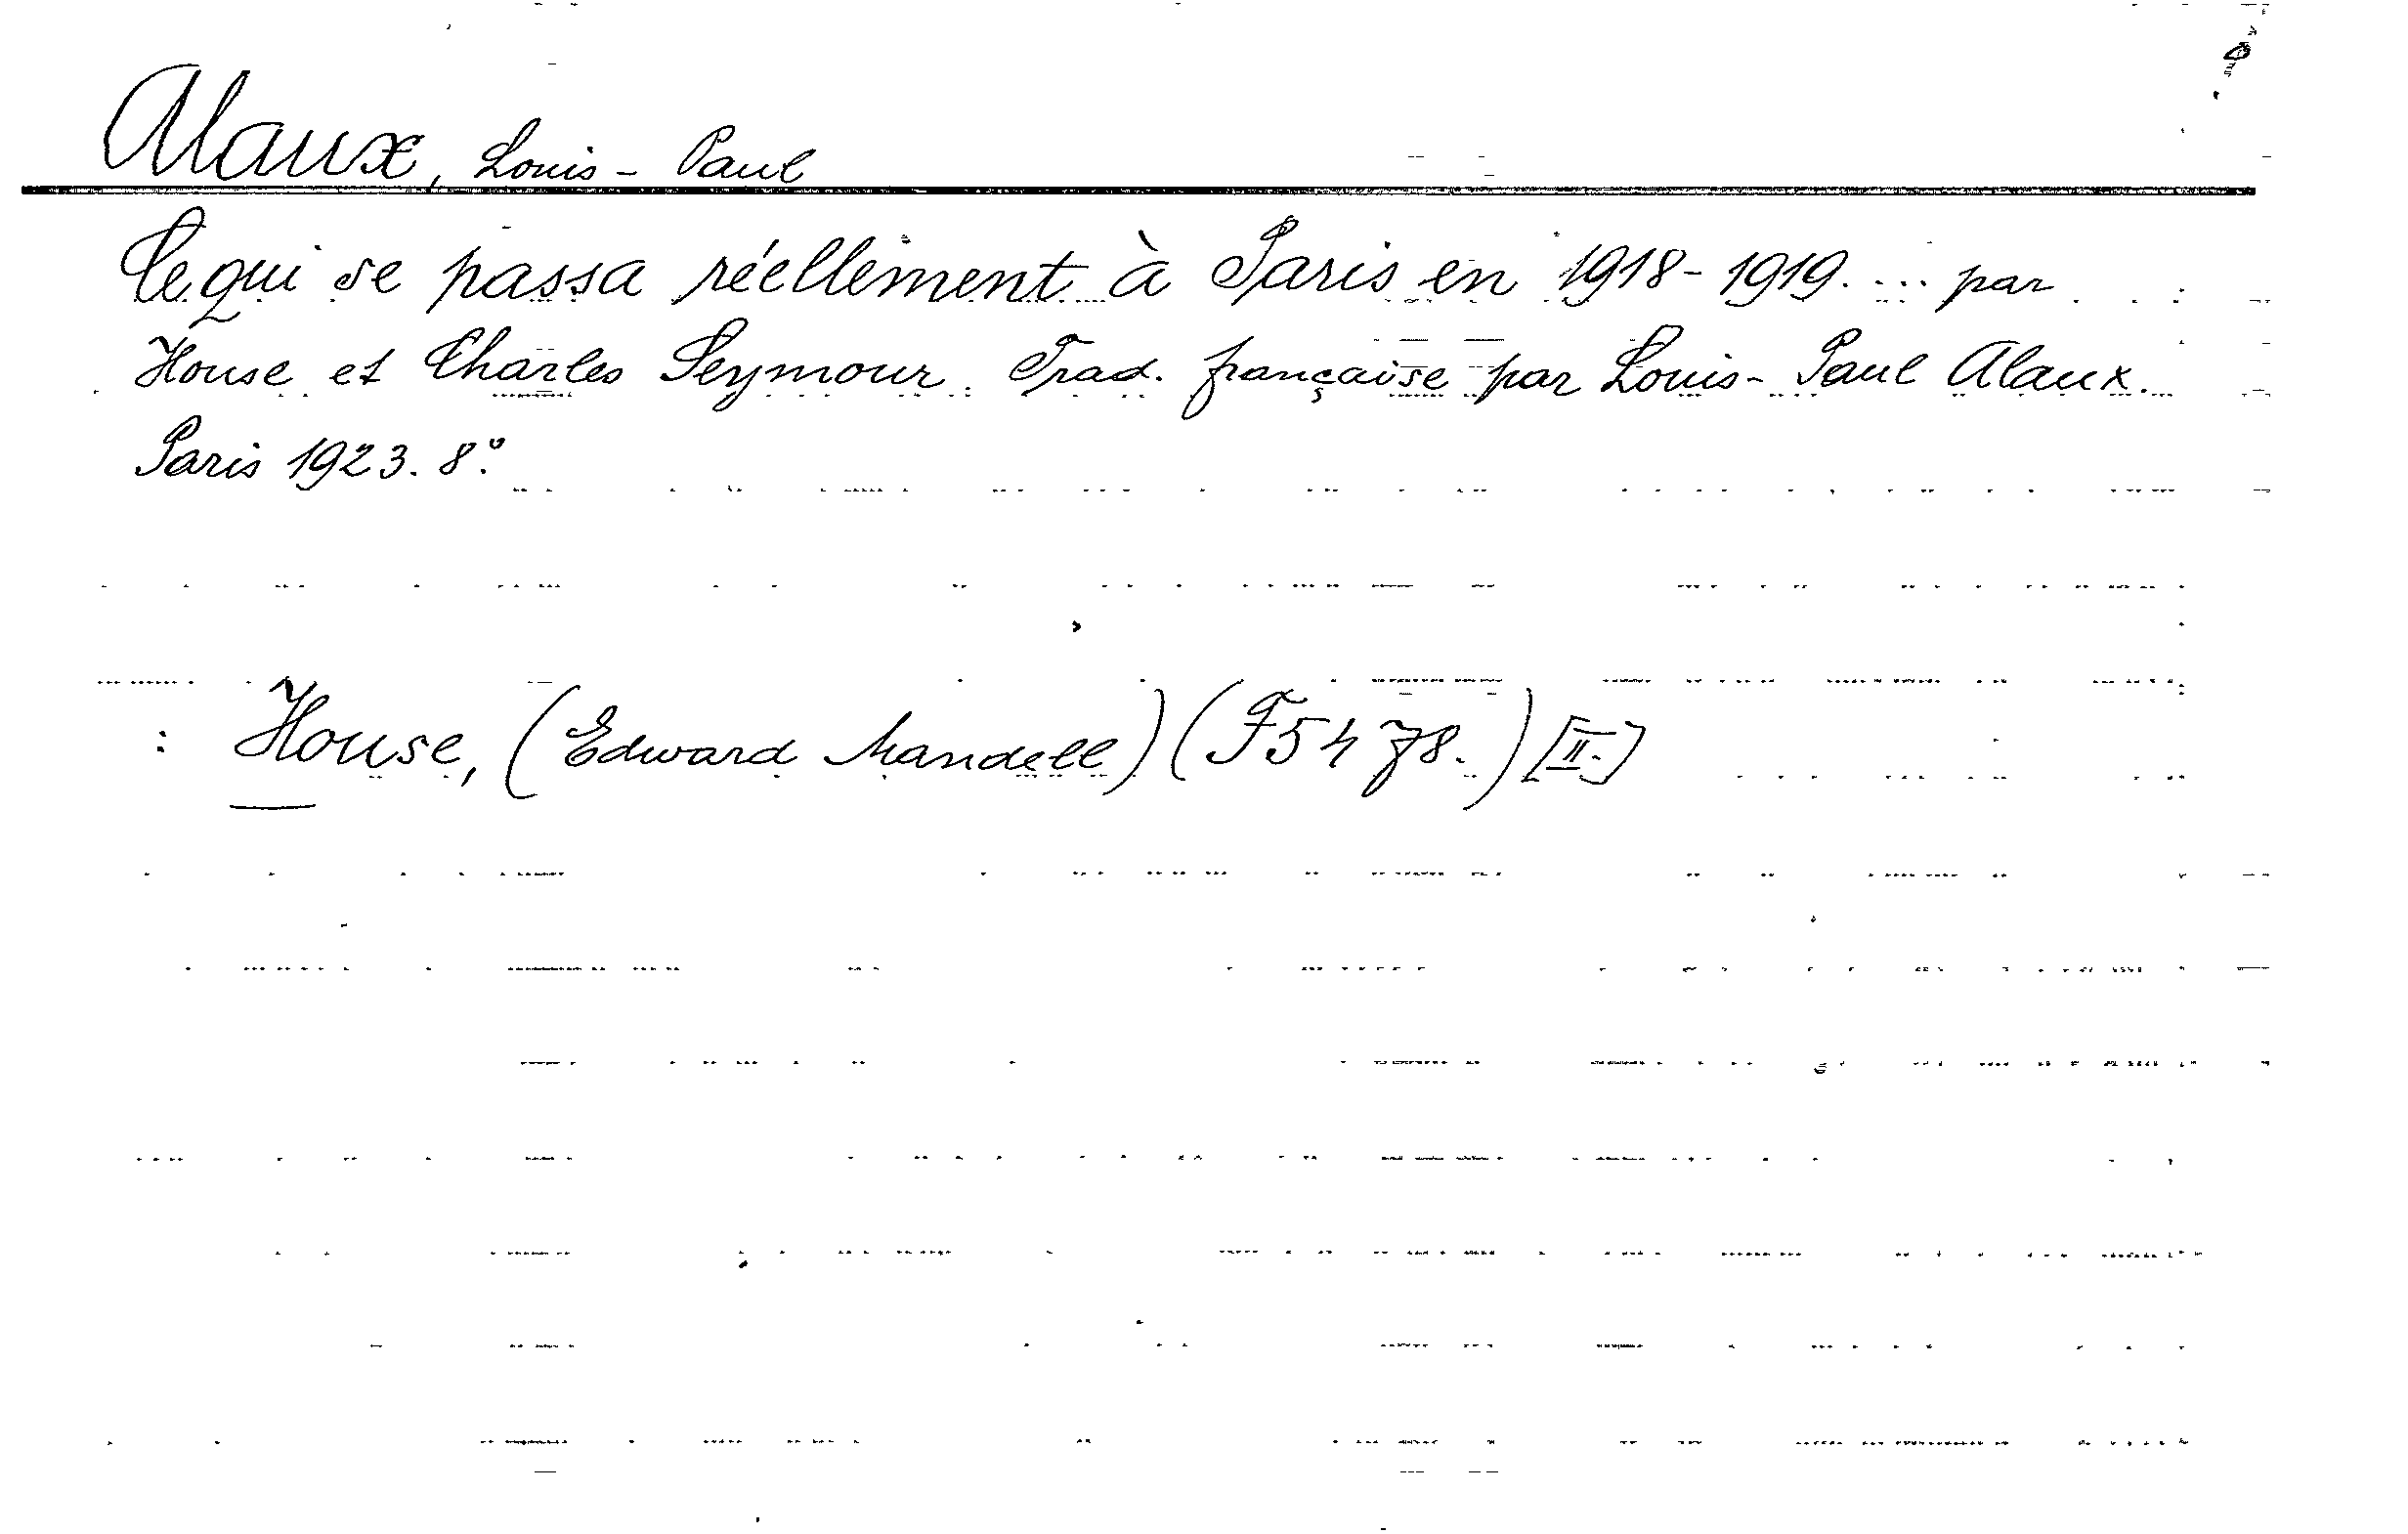 Alaux, Louis-Paul
Ce qui se passa réellement à Paris en 1918-1919. ... par
House et Charles Seymour. Trad. française par Louis-Paul Alaux.
Paris 1923. 8°.
: House, (Edward Mandell) (F 5478.) [II.]